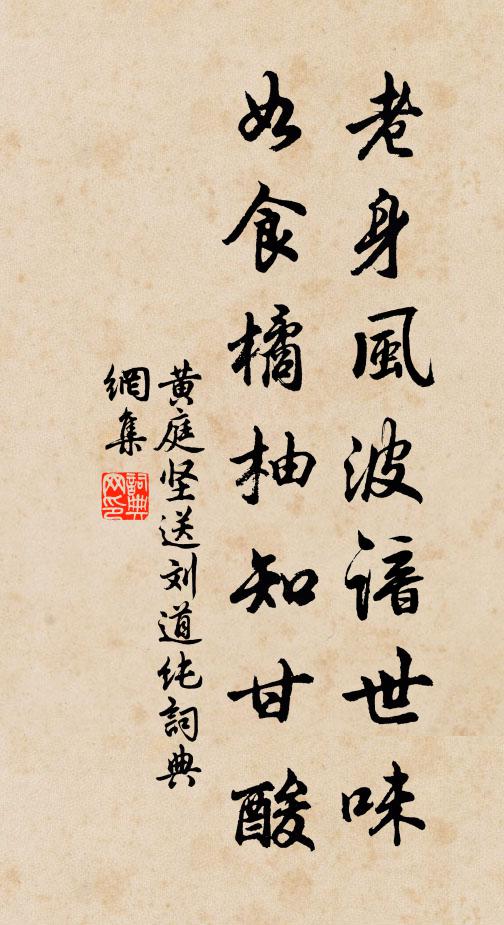 老身風波諳世味
如食橘柚知甘酸
黄庭坚送刘道纯詞典
網集
詞典
网印